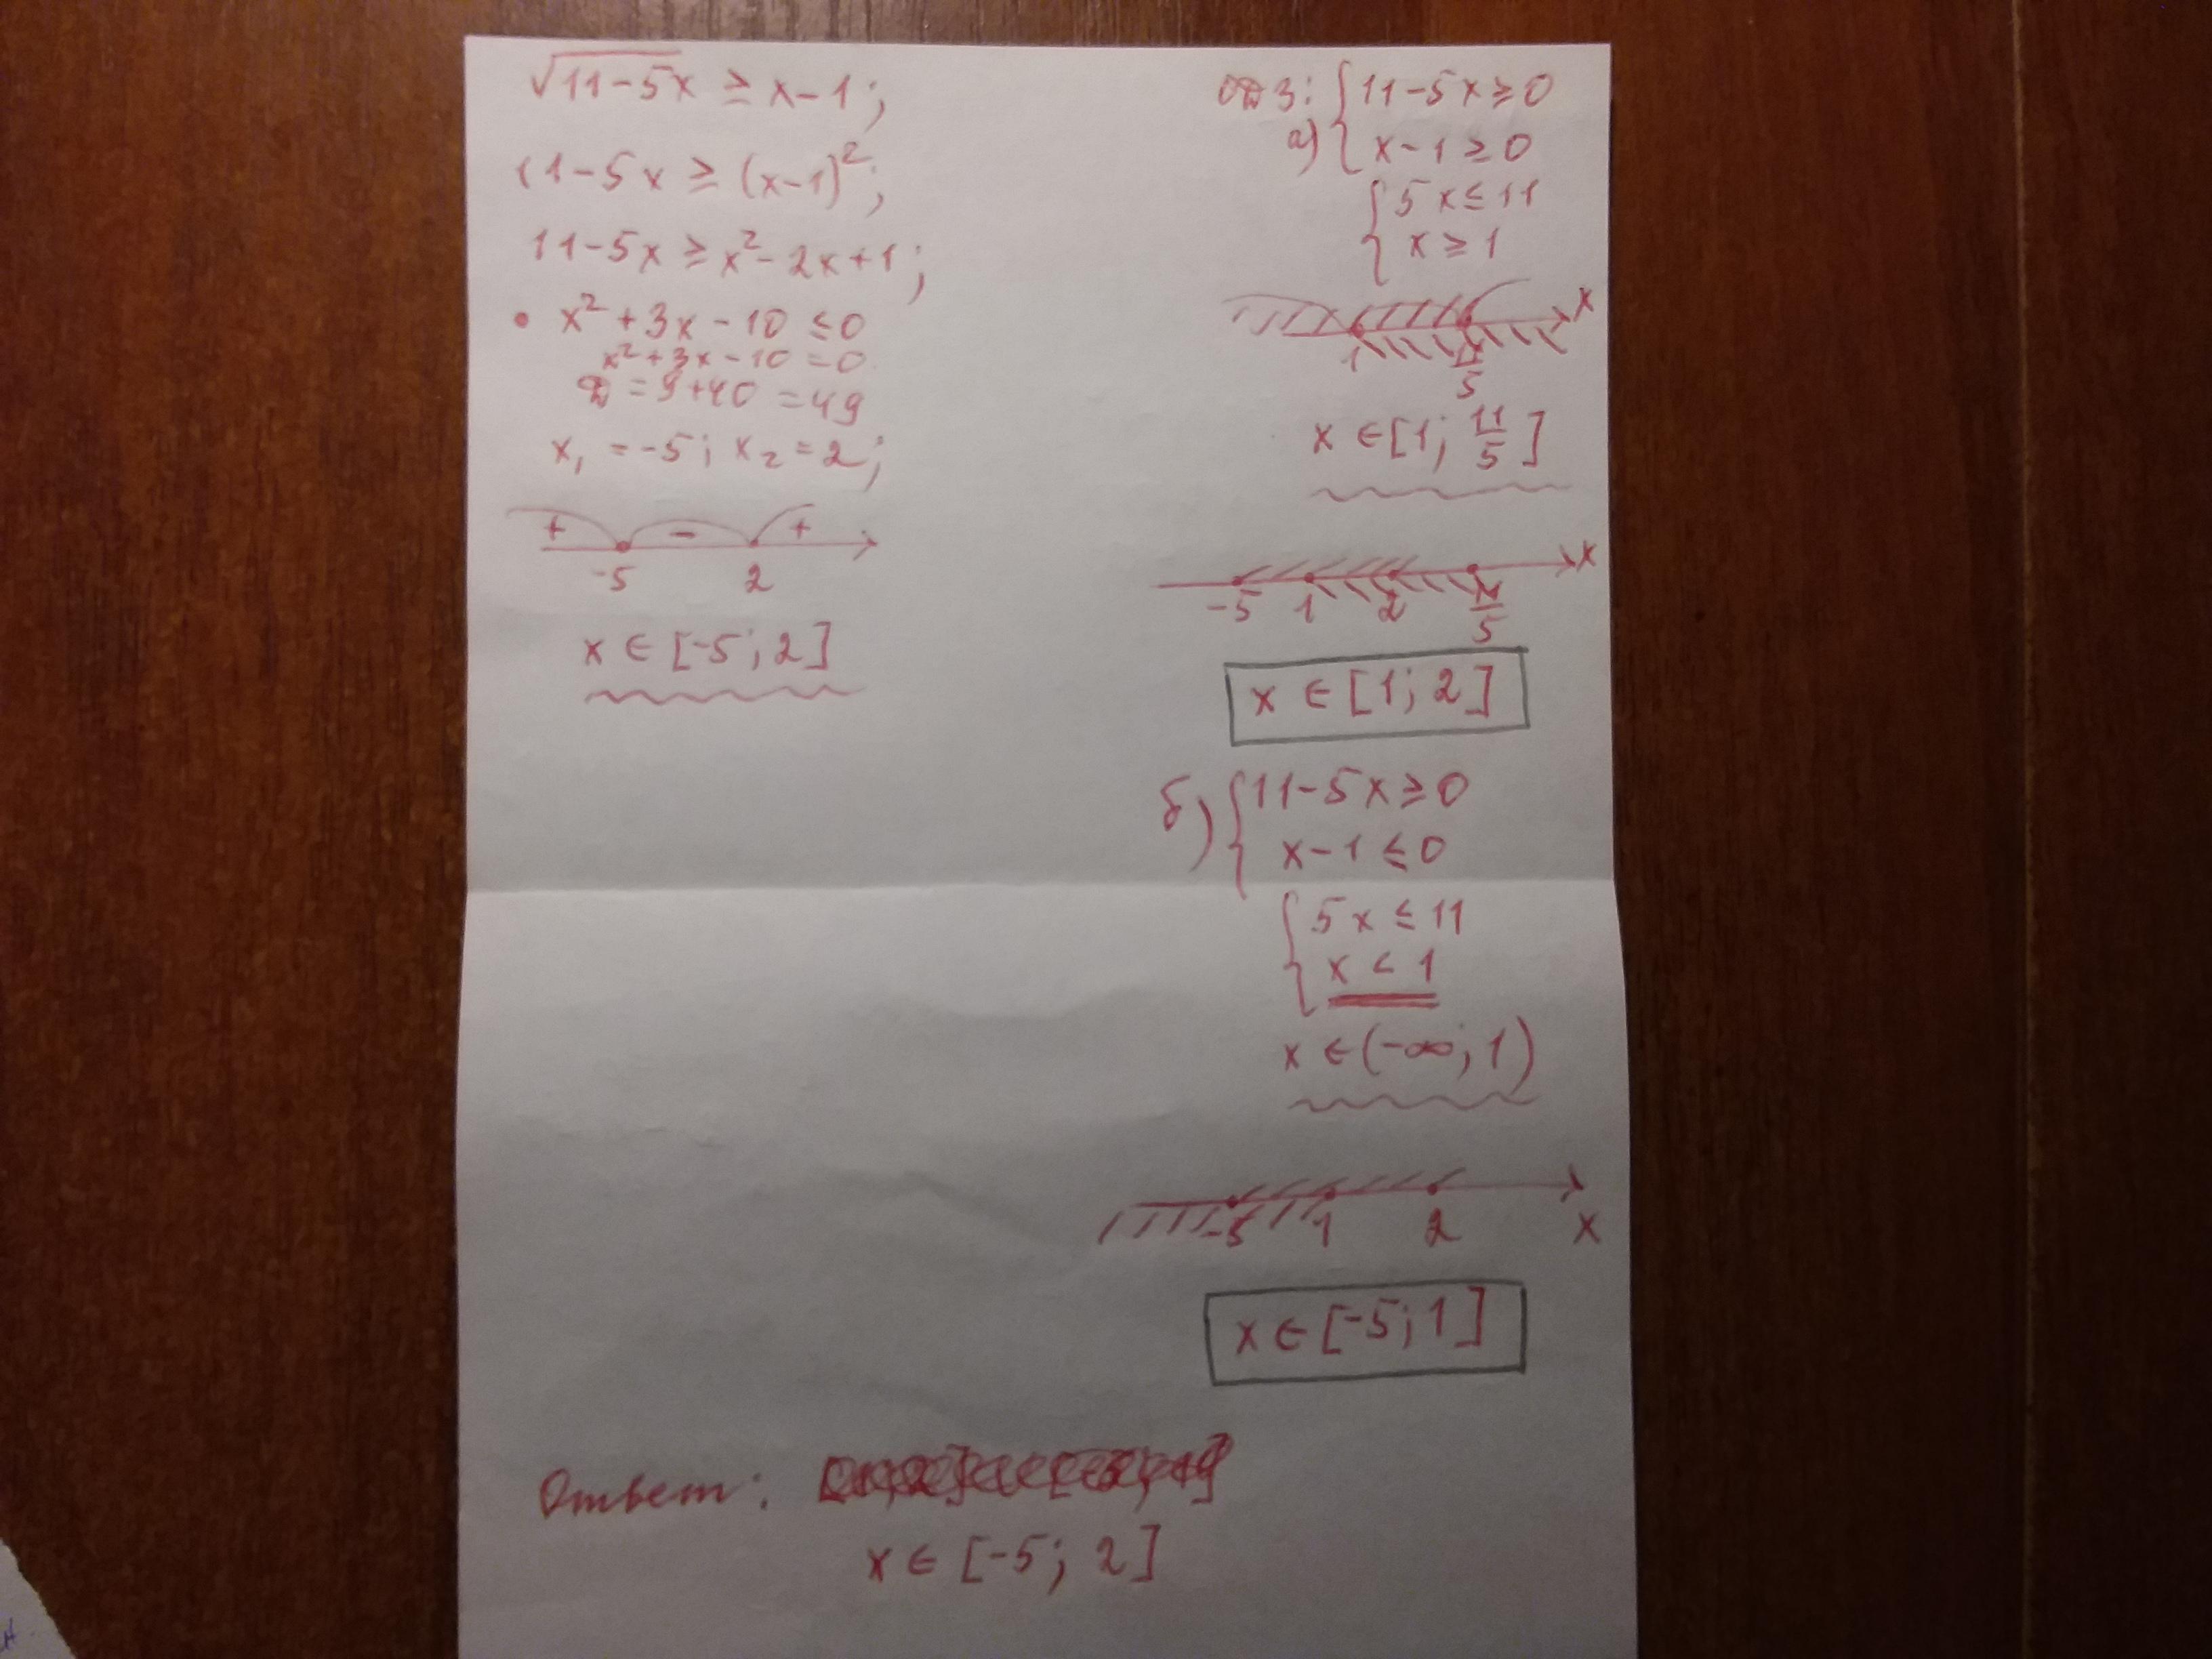 √11-5x ≥ x-1;
11-5x ≥ (x-1)²;
11-5x ≥ x²-2x+1;
• x²+3x-10 ≤0
x²+3x-10=0
D=9+40=49
x₁ =-5; x₂=2;
+ - +
-5 2
x ∈ [-5; 2]
ОДЗ: { 11-5x≥0
а) x-1≥0
{ 5x≤11
x≥1
x
1 11/5
x ∈[1; 11/5]
x
-5 1 2 11/5
x ∈ [1; 2]
б) { 11-5x≥0
x-1≤0
{ 5x≤11
x<1
x∈(-∞; 1)
-5 1 2 x
x∈[-5; 1]
Ответ:
x∈[-5; 2]